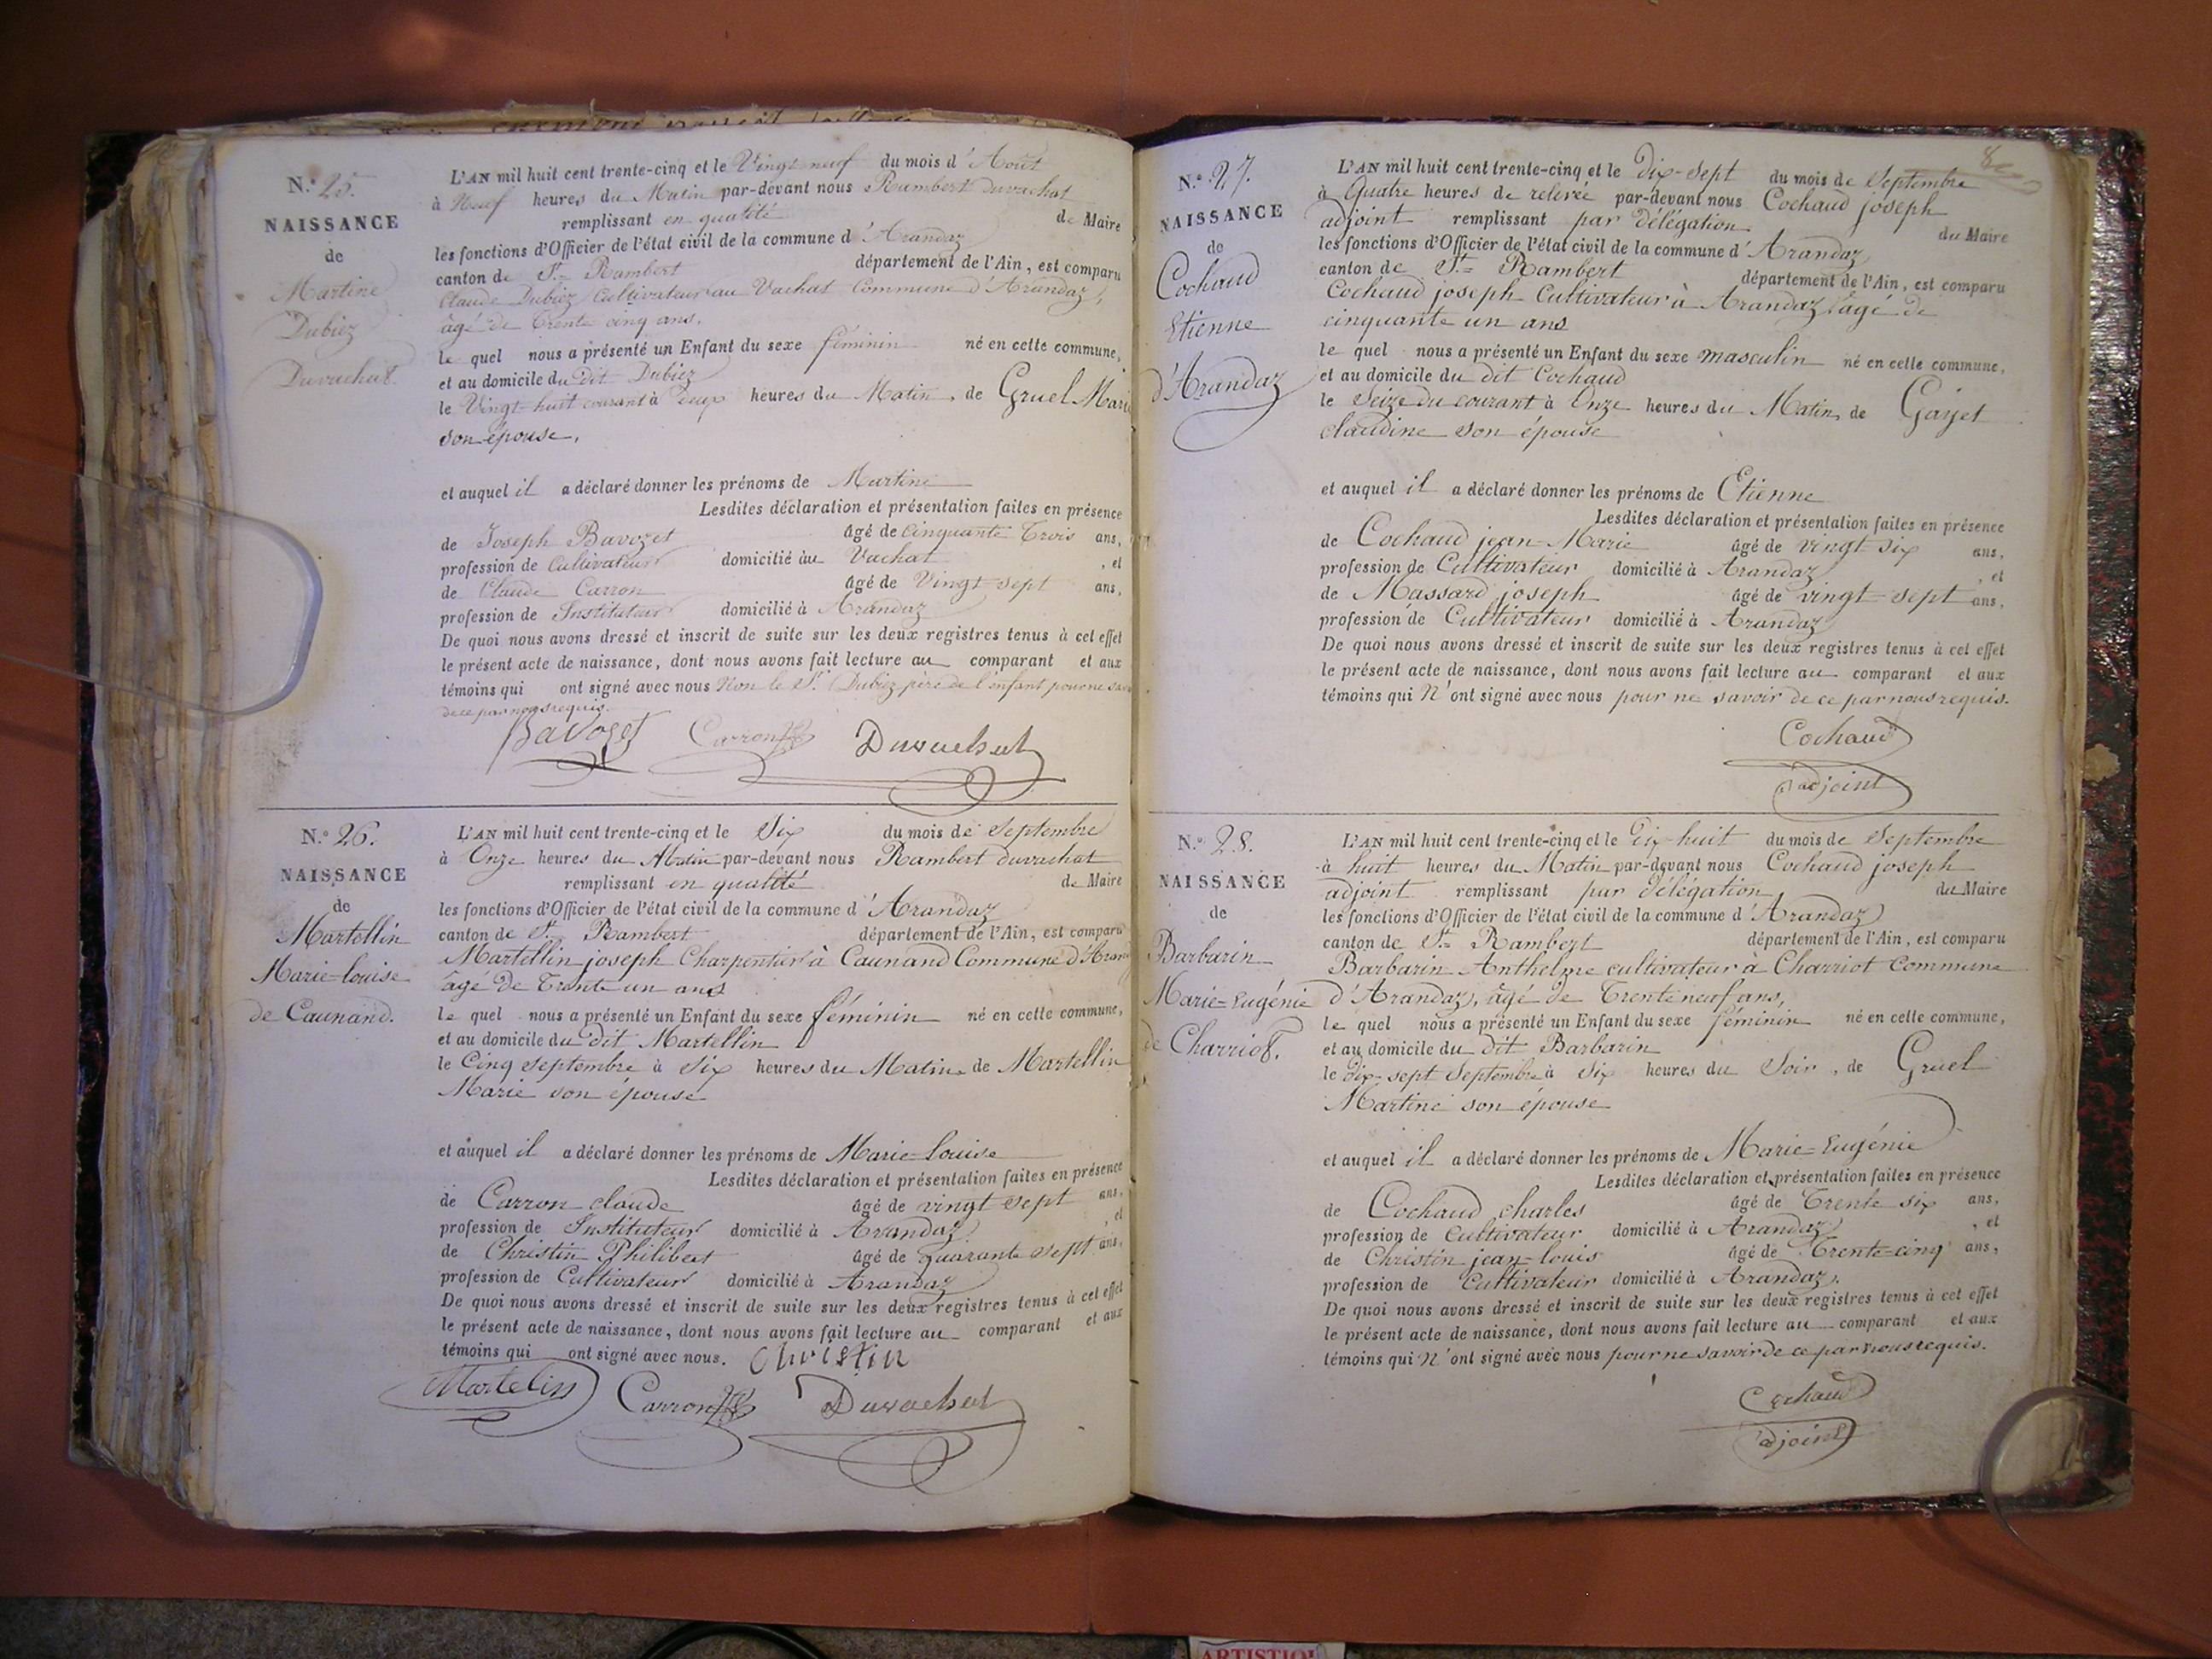 N.º 25.
NAISSANCE
de
Martine
Dubiez
Duvachat.
L'AN mil huit cent trente-cinq et le Vingt-neuf du mois d'Août
à Neuf heures du Matin par-devant nous Rambert Duvachat
remplissant en qualité de Maire
les fonctions d'Officier de l'état civil de la commune d'Arandaz
canton de St. Rambert département de l'Ain, est comparu
Claude Dubiez Cultivateur au Vachat Commune d'Arandaz,
âgé de Trente cinq ans.
le quel nous a présenté un Enfant du sexe féminin né en cette commune,
et au domicile du dit Dubiez
le Vingt-huit courant à deux heures du Matin, de Gruel Marie
son épouse.
et auquel il a déclaré donner les prénoms de Martine
Lesdites déclaration et présentation faites en présence
de Joseph Bavozet âgé de Cinquante Trois ans,
profession de Cultivateur domicilié au Vachat, et
de Claude Carron âgé de Vingt-sept ans,
profession de Instituteur domicilié à Arandaz
De quoi nous avons dressé et inscrit de suite sur les deux registres tenus à cet effet
le présent acte de naissance, dont nous avons fait lecture au comparant et aux
témoins qui ont signé avec nous Non le Sr. Dubiez père de l'enfant pour ne savoir
de ce par nous requis.
Bavozet Carron Duvachat
N.º 26.
NAISSANCE
de
Martellin
Marie-louise
de Caunand.
L'AN mil huit cent trente-cinq et le Six du mois de Septembre
à Onze heures du Matin par-devant nous Rambert duvachat
remplissant en qualité de Maire
les fonctions d'Officier de l'état civil de la commune d'Arandaz
canton de St. Rambert département de l'Ain, est comparu
Martellin joseph Charpentier à Caunand Commune d'Arandaz
âgé de Trente un ans
le quel nous a présenté un Enfant du sexe féminin né en cette commune,
et au domicile du dit Martellin
le Cinq Septembre à Six heures du Matin de Martellin
Marie son épouse
et auquel il a déclaré donner les prénoms de Marie-louise
Lesdites déclaration et présentation faites en présence
de Carron claude âgé de vingt sept ans,
profession de Instituteur domicilié à Arandaz, et
de Christin Philibert âgé de quarante sept ans,
profession de Cultivateur domicilié à Arandaz
De quoi nous avons dressé et inscrit de suite sur les deux registres tenus à cet effet
le présent acte de naissance, dont nous avons fait lecture au comparant et aux
témoins qui ont signé avec nous. Christin
Martelin Carron Duvachat
N.º 27.
NAISSANCE
de
Cochaud
Etienne
d'Arandaz
L'AN mil huit cent trente-cinq et le Dix-sept du mois de Septembre
à Quatre heures de relevée par-devant nous Cochaud joseph
adjoint remplissant par délégation du Maire
les fonctions d'Officier de l'état civil de la commune d'Arandaz
canton de St. Rambert département de l'Ain, est comparu
Cochaud joseph Cultivateur à Arandaz âgé de
cinquante un ans
le quel nous a présenté un Enfant du sexe masculin né en cette commune,
et au domicile du dit Cochaud
le Seize du courant à Onze heures du Matin, de Gayet
claudine son épouse
et auquel il a déclaré donner les prénoms de Etienne
Lesdites déclaration et présentation faites en présence
de Cochaud jean-Marie âgé de vingt six ans,
profession de Cultivateur domicilié à Arandaz, et
de Massard joseph âgé de vingt sept ans,
profession de Cultivateur domicilié à Arandaz
De quoi nous avons dressé et inscrit de suite sur les deux registres tenus à cet effet
le présent acte de naissance, dont nous avons fait lecture au comparant et aux
témoins qui N'ont signé avec nous pour ne savoir de ce par nous requis.
Cochaud
adjoint
N.º 28.
NAISSANCE
de
Barbarin
Marie-Eugénie
de Charriot.
L'AN mil huit cent trente-cinq et le Dix-huit du mois de Septembre
à huit heures du Matin par-devant nous Cochaud joseph
adjoint remplissant par délégation du Maire
les fonctions d'Officier de l'état civil de la commune d'Arandaz
canton de St. Rambert département de l'Ain, est comparu
Barbarin Anthelme cultivateur à Charriot commune
d'Arandaz, âgé de Trente neuf ans,
le quel nous a présenté un Enfant du sexe féminin né en cette commune,
et au domicile du dit Barbarin
le dix-sept Septembre à Six heures du Soir, de Gruel
Martine son épouse
et auquel il a déclaré donner les prénoms de Marie-Eugénie
Lesdites déclaration et présentation faites en présence
de Cochaud charles âgé de Trente six ans,
profession de Cultivateur domicilié à Arandaz, et
de Christin jean-louis âgé de Trente-cinq ans,
profession de Cultivateur domicilié à Arandaz.
De quoi nous avons dressé et inscrit de suite sur les deux registres tenus à cet effet
le présent acte de naissance, dont nous avons fait lecture au comparant et aux
témoins qui N'ont signé avec nous pour ne savoir de ce par nous requis.
Cochaud
adjoint